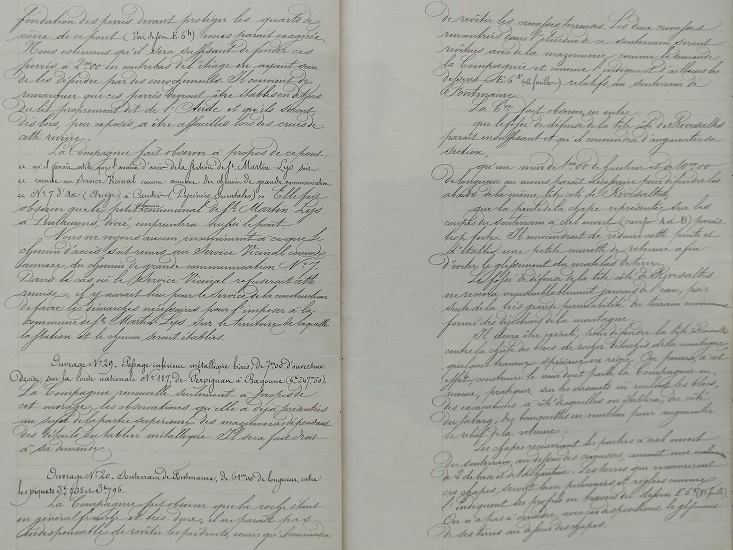 fondation des perrés devant protéger les quarts de
cône de ce pont (Voir dessin E. 6 bis) nous paraît exagérée.
Nous estimons qu'il sera suffisant de fonder ces
perrés à 2m00 en contrebas de l'étiage en ayant soin
de les défendre par des enrochements. Il convient de
remarquer que ces perrés devront être établis en dehors
du lit proprement dit de l'Aude et qu'ils seront
dès lors, peu exposés à être affouillés lors des crues de
cette rivière.
La Compagnie fait observer à propos de ce pont
" qu'il paraît utile que l'avenue d'accès de la station de St Martin-Lys soit
" remise au Service Vicinal comme annexe du chemin de grande communication
" No 7 d'Ax (Ariège) à Caudiès (Pyrénées Orientales) ". Elle fait
observer que le chemin communal de St Martin Lys
à Quillan, devra emprunter le pont.
Nous ne voyons aucun inconvénient à ce que le
chemin d'accès soit remis au Service Vicinal comme
annexe du chemin de grande communication No 7.
Dans le cas où le Service Vicinal refuserait cette
remise, il y aurait lieu pour le Service de la construction
de faire les démarches nécessaires pour l'imposer à la
commune de St Martin Lys sur le territoire de laquelle
la station et le chemin seront établis.
Ouvrage No 29. Passage inférieur métallique biais, de 7m00 d'ouverture
Droite, sur la route nationale No 117, de Perpignan à Bayonne
La Compagnie renouvelle seulement à propos de
cet ouvrage, les observations qu'elle a déjà présentées
au sujet de la partie supérieure des maçonneries
du tablier métallique. Il sera fait droit
à sa demande.
Ouvrage No 20. Souterrain de Fontmaure, de 61m00 de longueur, entre
les piquets
La Compagnie fait observer que la roche étant
en général très dure, il ne paraît pas
indispensable de revêtir les piédroits, mais qu'il conviendra
de revêtir les crevasses terreuses. Les deux crevasses
rencontrées dans l'étendue de ce souterrain seront
revêtues avec de la maçonnerie comme le demande
la Compagnie et comme l'indiquent d'ailleurs les
dessins E. 6 relatifs au souterrain de
Fontmaure.
La Cie fait observer en outre
que le fossé de défense de la tête côté de Rivesaltes
paraît insuffisant et qu'il conviendra d'augmenter sa
section,
qu'un mur de 1m00 de hauteur et de
de longueur au moins paraît nécessaire pour défendre les
abords de la même tête côté de Rivesaltes,
que la pente de chape représentée sur les
coupes du souterrain à ciel ouvert paraît
trop forte. Il conviendrait de réduire cette pente et
d'établir une petite murette de retenue afin
d'éviter le glissement du matelas de terre.
Le fossé de défense de la tête côté de Rivesaltes
ne recevra vraisemblablement jamais d'eau, par
suite de la très grande perméabilité du terrain
formé des déjections de la montagne.
Il devra être exécuté, pour défendre la tête
contre la chute des blocs de rocher de la montagne
quelques travaux spéciaux en régie. On pourra, à cet
effet, construire le mur dont parle la Compagnie
pratiquer sur les versants où roulent les blocs,
des excavations à côté desquelles on établira, du côté
du talus, des banquettes en remblai pour augmenter
le relief de la retenue.
Les chapes recouvrant les parties à ciel ouvert
du souterrain, au dessus des crevasses, auront une
Les terres qui recouvriront
ces chapes seront bien pilonnées et réglées comme
l'indiquent les profils en travers du dessin E. 6
On n'a pas à craindre, avec ces dispositions, le glissement
de ces terres au dessus des chapes.